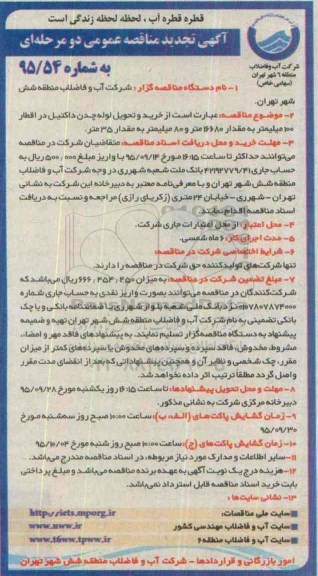 قطره قطره آب ، لحظه لحظه زندگی است
آگهی تجدید مناقصه عمومی دو مرحله‌ای
به شماره 95/54
شرکت آب و فاضلاب
منطقه ۶ شهر تهران
(سهامی خاص)
۱- نام دستگاه مناقصه گزار : شرکت آب و فاضلاب منطقه شش
شهر تهران.
۲- موضوع مناقصه: عبارت است از خرید و تحویل لوله چدن داکتیل در اقطار
۱۰۰ میلیمتر به مقدار ۱۶۶۸۰ متر و ۸۰ میلیمتر به مقدار ۳۵ متر.
۳- مهلت خرید و محل دریافت اسناد مناقصه: متقاضیان شرکت در مناقصه
می‌توانند حداکثر تا ساعت ۱۶:۱۵ مورخ ۹۵/۰۹/۱۴ با واریز مبلغ ۵۰۰،۰۰۰ ریال به
حساب جاری ۴۲۹۴۷۷۹/۴۱ بانک ملت شعبه شهرری در وجه شرکت آب و فاضلاب
منطقه شش شهر تهران و با معرفی نامه معتبر به دبیرخانه این شرکت به نشانی
تهران - شهرری - خیابان ۲۴ متری (زکریای رازی) مراجعه و نسبت به دریافت
اسناد مناقصه اقدام نمایند.
۴- محل اعتبار: از محل اعتبارات جاری شرکت.
۵- مدت اجرای کار: ۶ ماه شمسی.
۶- شرایط اختصاصی شرکت در مناقصه:
تنها شرکت‌های تولیدکننده حق شرکت در مناقصه را دارند.
۷- مبلغ تضمین شرکت در مناقصه: به میزان ۶۶۶،۴۵۳،۴۵۰ ریال می‌باشد که
شرکت‌کنندگان در مناقصه می‌توانند بصورت واریز نقدی به حساب جاری شماره
نزد بانک ملی شعبه بلوار شهرری یا ضمانتنامه بانکی و یا چک
بانکی تضمینی به نام شرکت آب و فاضلاب منطقه شش شهر تهران تهیه و ضمیمه
پیشنهاد به دستگاه مناقصه‌گزار تسلیم نمایند. به پیشنهادهای فاقد مهر و امضاء،
مشروط، مخدوش، فاقد سپرده و سپرده‌های مخدوش یا سپرده‌های کمتر از میزان
مقرر، چک شخصی و نظایر آن و همچنین پیشنهاداتی که بعد از انقضای مدت مقرر
واصل گردد مطلقا ترتیب اثر داده نخواهد شد.
۸- مهلت و محل تحویل پیشنهادها: تا ساعت ۱۶:۱۵ روز یکشنبه مورخ ۹۵/۰۹/۲۸
دبیرخانه شرکت به نشانی مذکور.
۹- زمان گشایش پاکت‌های (الف، ب): ساعت ۱۰:۰۰ صبح روز سه‌شنبه مورخ
۹۵/۰۹/۳۰
۱۰- زمان گشایش پاکت‌های (ج): ساعت ۱۰:۰۰ صبح روز شنبه مورخ ۹۵/۱۰/۰۴
۱۱- سایر اطلاعات و مدارک مورد نیاز مربوطه، در اسناد مناقصه مندرج می‌باشد.
۱۲- هزینه درج یک نوبت آگهی به عهده برنده مناقصه می‌باشد و مبلغ پرداختی
بابت خرید اسناد مناقصه قابل استرداد نمی‌باشد.
۱۳- نشانی سایت‌ها :
سایت ملی مناقصات: http://iets.mporg.ir
سایت آب و فاضلاب مهندسی کشور www.nww.ir
سایت آب و فاضلاب منطقه ۶ www.t6ww.tpww.ir
امور بازرگانی و قراردادها - شرکت آب و فاضلاب منطقه شش شهر تهران